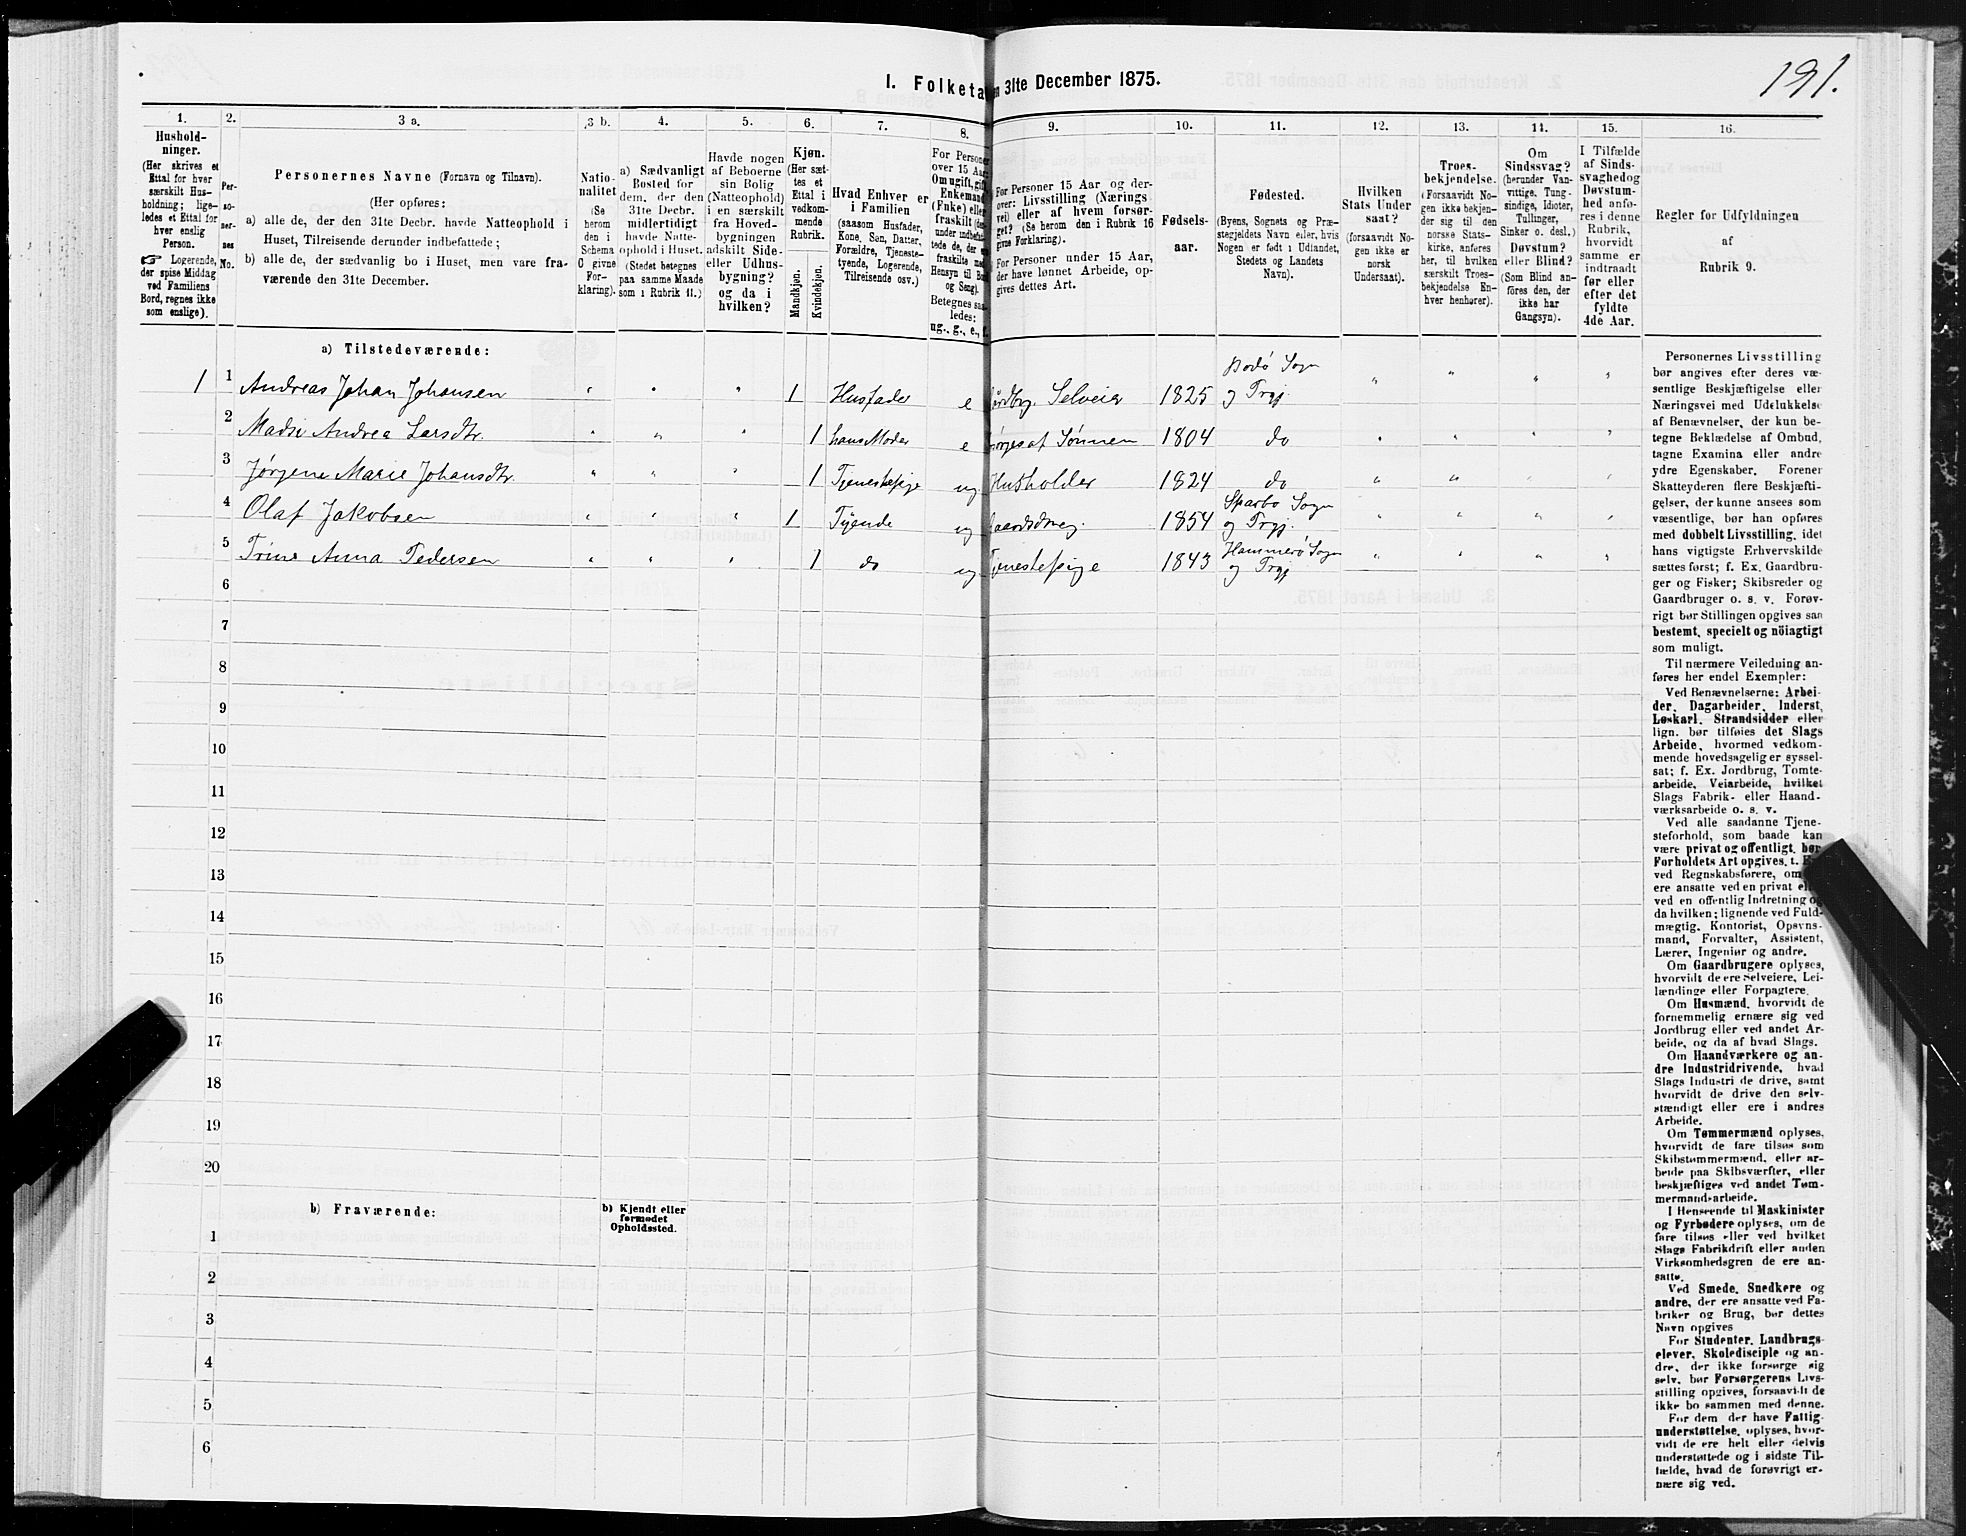 191.
I. Folketa
n 31te December 1875.
1.
Hushold-
ninger.
(Her skrives et
Ettal for hver
særskilt Hus-
holdning; lige-
ledes et Ettal for
hver enslig
Person.
☞ Logerende,
der spise Middag
ved Familiens
Bord, regnes ikke
som enslige).
2.
Per-
so-
ner-
nes
No.
3 a.
Personernes Navne (Fornavn og Tilnavn).
(Her opføres:
a) alle de, der den 31te Decbr. havde Natteophold i
Huset, Tilreisende derunder indbefattede;
b) alle de, der sædvanlig bo i Huset, men vare fra-
værende den 31te December.
3 b.
Natio-
nalitet
(Se
herom
den i
Schema
O givne
For-
klaring).
4.
a) Sædvanligt
Bosted for
dem, der den
31te Decbr.
midlertidigt
havde Natte-
ophold i Huset.
(Stedet betegnes
paa samme Maade
som i Rubrik 11.)
5.
Havde nogen
af Beboerne
sin Bolig
(Natteophold)
i en særskilt
fra Hoved-
bygningen
adskilt Side-
eller Udhus-
bygning?
og da i
hvilken?
6.
Kjøn.
(Her sæt-
tes et
Ettal i
vedkom-
mende
Rubrik.
Mandkjøn.
Kvindekjøn.
7.
Hvad Enhver er
i Familien
(saasom Husfader,
Kone, Søn, Datter,
Forældre, Tjeneste-
tyende, Logerende,
Tilreisende osv.)
8.
For Personer
over 15 Aar:
Om ugift, gift,
Enkemand
(Enke) eller
fraskilt
Betegnes saa-
ledes:
ug., g., e.,
9.
For Personer 15 Aar og der-
over: Livsstilling (Nærings
vei) eller af hvem forsør-
get? (Se herom den i Rubrik 16
givne Forklaring).
For Personer under 15 Aar,
der have lønnet Arbeide, op-
gives dettes Art.
10.
Fødsels-
aar.
11.
Fødested.
(Byens, Sognets og Præ-
stegjeldets Navn eller, hvis
Nogen er født i Udlandet,
Stedets og Landets
Navn).
12.
Hvilken
Stats Under
saat?
(forsaavidt No-
gen ikke er
norsk
Undersaat).
13.
Troes-
bekjendelse.
(Forsaavidt No-
gen ikke bekjen-
der sig til den
norske Stats-
kirke, anføres
her, til hvilken
særskilt Troes-
bekjendelse En-
hver henhører).
14.
Om
Sindssvag?
(herunder Van-
vittige, Tung-
sindige, Idioter,
Tullinger,
Sinker o. desl.)
Døvstum?
eller Blind?
(Som Blind an-
føres den, der
ikke har
Gangsyn).
15.
I Tilfælde
af Sinds-
svaghed og
Døvstum-
hed anfø-
res i denne
Rubrik,
hvorvidt
samme er
indtraadt
før eller
efter det
fyldte
4de Aar.
16.
Regler for Udfyldningen
af
Rubrik 9.
a) Tilstedeværende:
1 1 Andreas Johan Johansen " " " 1 Husfader e Jordbrg. Selveier 1825 Bodø Sogn og Prgj. " " " "
2 Madse Andrea Larsdtr. " " " 1 hans Moder e førges af Sønnen 1804 do " " " "
3 Jørgene Marie Johansdtr. " " " 1 Tjenestepige ug Husholder 1824 do " " " "
4 Olaf Jakobsen " " " 1 Tyende ug Gaardsdreng. 1854 Sparbo Sogn og Prgj. " " " "
5 Trine Anna Pedersen " " " 1 do ug Tjenestepige 1843 Hammerø Sogn og Prgj " " " "
6
7
8
9
10
11
12
13
14
15
16
17
18
19
20
b) Fraværende:
b) Kjendt eller
formodet
Opholdssted.
1
2
3
4
5
6
Personernes Livsstilling
bør angives efter deres væ-
sentlige Beskjæftigelse eller
Næringsvei med Udelukkelse
af Benævnelser, der kun be-
tegne Beklædelse af Ombud,
tagne Examina eller andre
ydre Egenskaber. Forener
Skatteyderen flere Beskjæfti-
gelser, der kunne ansees som
væsentlige, bør han opføres
med dobbelt Livsstilling, idet
hans vigtigste Erhvervskilde
sættes først; f. Ex. Gaardbru-
ger og Fisker; Skibsreder og
Gaardbruger o. s. v. Forøv-
rigt bør Stillingen opgives saa
bestemt, specielt og nöiagtigt
som muligt.
Til nærmere Veiledning an-
føres her endel Exempler:
Ved Benævnelserne: Arbei-
der, Dagarbeider, Inderst,
Løskarl, Strandsidder eller
lign. bør tilføies det Slags
Arbeide, hvormed vedkom-
mende hovedsagelig er syssel-
sat; f. Ex. Jordbrug, Tomte-
arbeide, Veiarbeide, hvilket
Slags Fabrik- eller Haand-
værksarbeide o. s. v.
Ved alle saadanne Tjene-
steforhold, som baade kan
være privat og offentligt, bør
Forholdets Art opgives, t. Ex.
ved Regnskabsførere, om
ere ansatte ved en privat eller
ved en offentlig Indretning og
da hvilken; lignende ved Fuld-
mægtig, Kontorist, Opsyns-
mand, Forvalter, Assistent,
Lærer, Ingeniør og andre.
Om Gaardbrugere oplyses,
hvorvidt de ere Selveiere, Lei-
lændinge eller Forpagtere.
Om Husmænd, hvorvidt de
fornemmelig ernære sig ved
Jordbrug eller ved andet Ar-
beide, og da af hvad Slags.
Om Haandværkere og an-
dre Industridrivende, hvad
Slags Industri de drive, samt
hvorvidt de drive den selv-
stændigt eller ere i andres
Arbeide.
Om Tømmermænd oplyses,
hvorvidt de fare tilsøs som
Skibstømmermænd, eller ar-
beide paa Skibsværfter, eller
beskjæftiges ved andet Tøm-
mermandsarbeide.
I Henseende til Maskinister
og Fyrbødere oplyses, om de
fare tilsøs eller ved hvilket
Slags Fabrikdrift eller anden
Virksomhedsgren de ere an-
satte.
Ved Smede, Snedkere og
andre, der ere ansatte ved Fa-
briker og Brug, bør dettes
Navn opgives
For Studenter, Landbrugs-
elever, Skoledisciple og an-
dre, der ikke forsørge sig
selv, bør Forsørgerens Livs-
stilling opgives, forsaavidt de
ikke bo sammen med denne.
For dem der have Fattig-
understøttelse, oplyses, hvor-
vidt de ere helt eller delvis
understøttede og i sidste Til-
fælde, hvad de forøvrigt er-
nære sig ved.